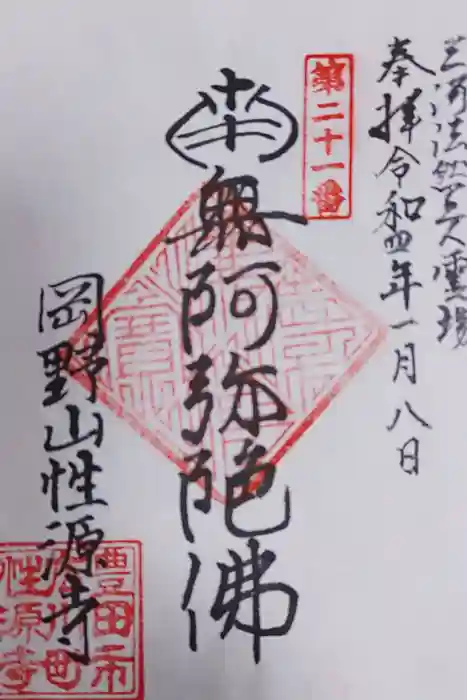 三河法然上人霊場
奉拝 令和四年一月八日
第二十一番
南無阿弥陀佛
岡野山性源寺
豊田市
性源寺